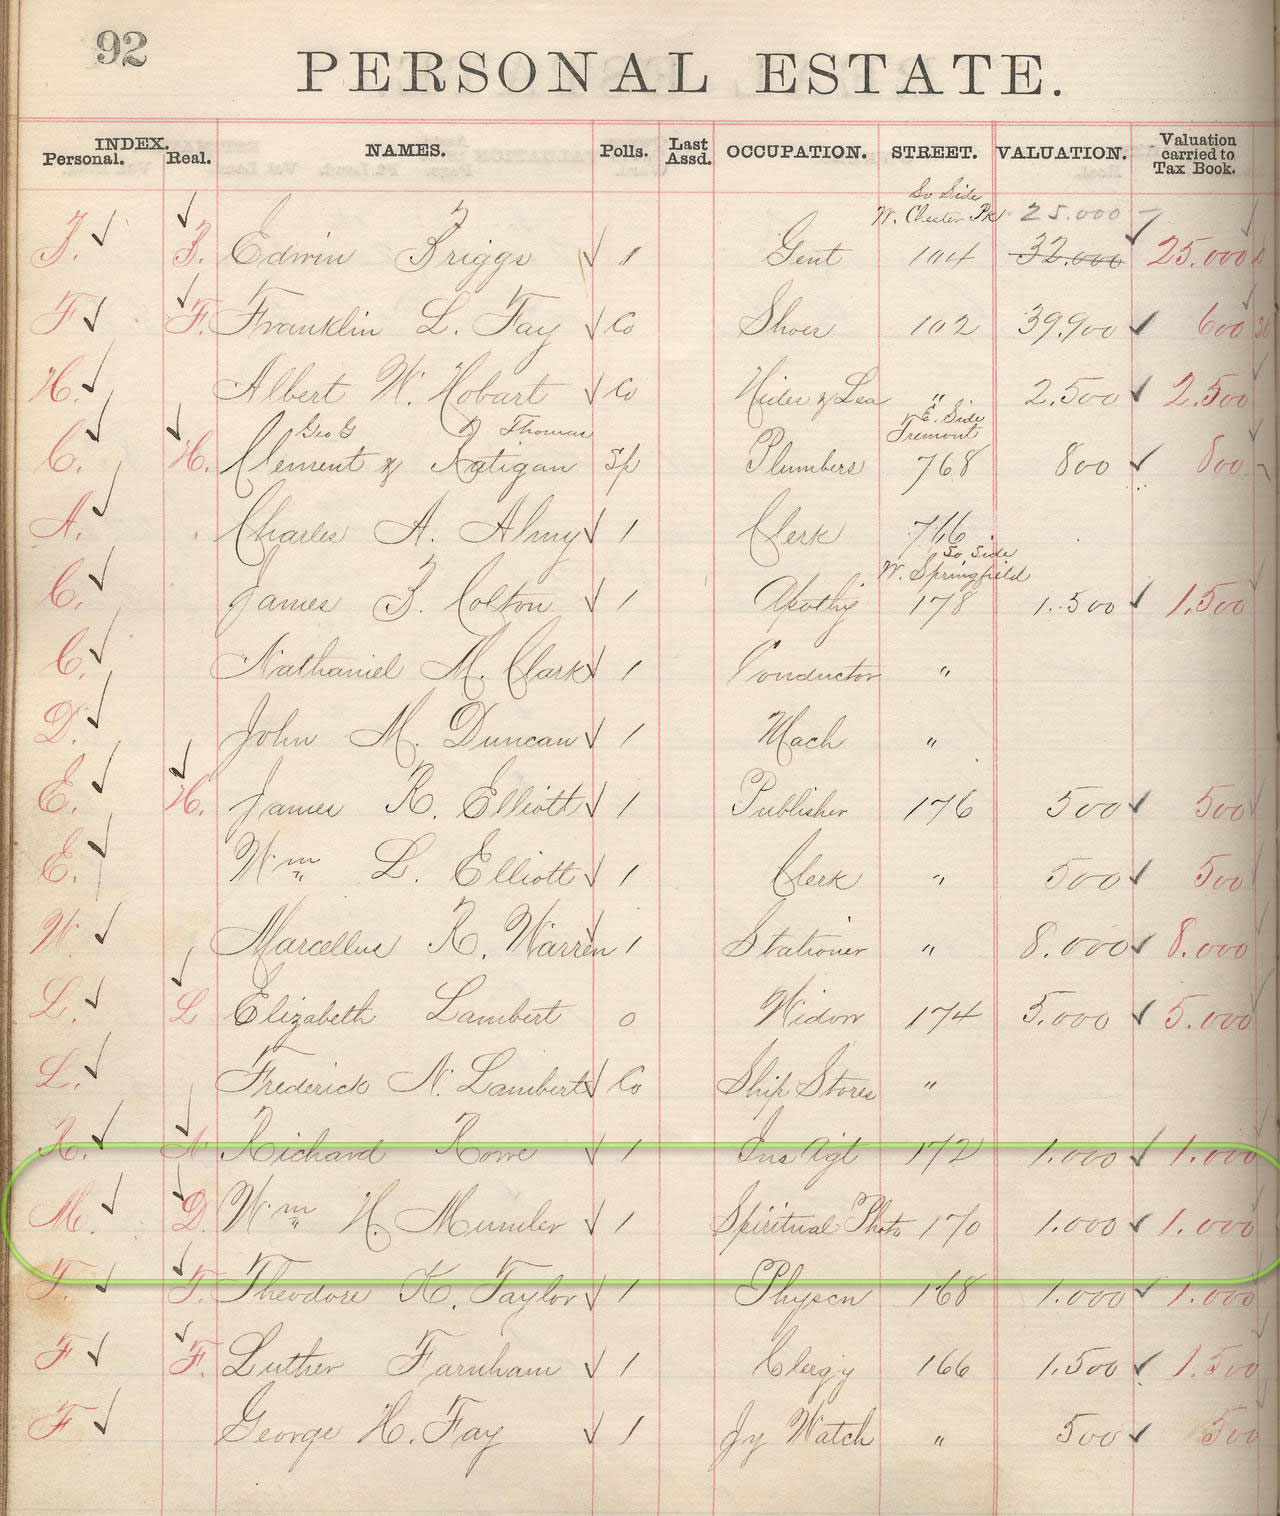 92
PERSONAL ESTATE.
INDEX.
Personal. Real. NAMES. Polls. Last Assd. OCCUPATION. STREET. VALUATION. Valuation carried to Tax Book.
So Side
W. Chester Pk 25.000
B. B. Edwin B Briggs 1 Gent 104 32.000 25.000
F F. Franklin L. Fay Co Shoes 102 39.900 600
H. Albert W. Hobart Co Hides & Lea " 2.500 2.500
Geo G Thomas E. Side Tremont
C. H. Clement & Ratigan Sp Plumbers 768 800 800
A. Charles A. Almy 1 Clerk 766
So Side
W. Springfield
C. James B. Colton 1 Apothy 178 1.500 1.500
C. Nathaniel M. Clark 1 Conductor "
D. John M. Duncan 1 Mach "
E. H. James R. Elliott 1 Publisher 176 500 500
E. Wm L. Elliott 1 Clerk " 500 500
W Marcellus R. Warren 1 Stationer " 8.000 8.000
L. L Elizabeth Lambert 0 Widow 174 5.000 5.000
L. Frederick N. Lambert Co Ship Stores "
R. Richard Rowe 1 Ins Agt 172 1.000 1.000
M. D. Wm H. Mumler 1 Spiritual Photo 170 1.000 1.000
T. T. Theodore K. Taylor 1 Physcn 168 1.000 1.000
F F. Luther Farnham 1 Clergy 166 1.500 1.500
F George H. Fay 1 Jy Watch " 500 500